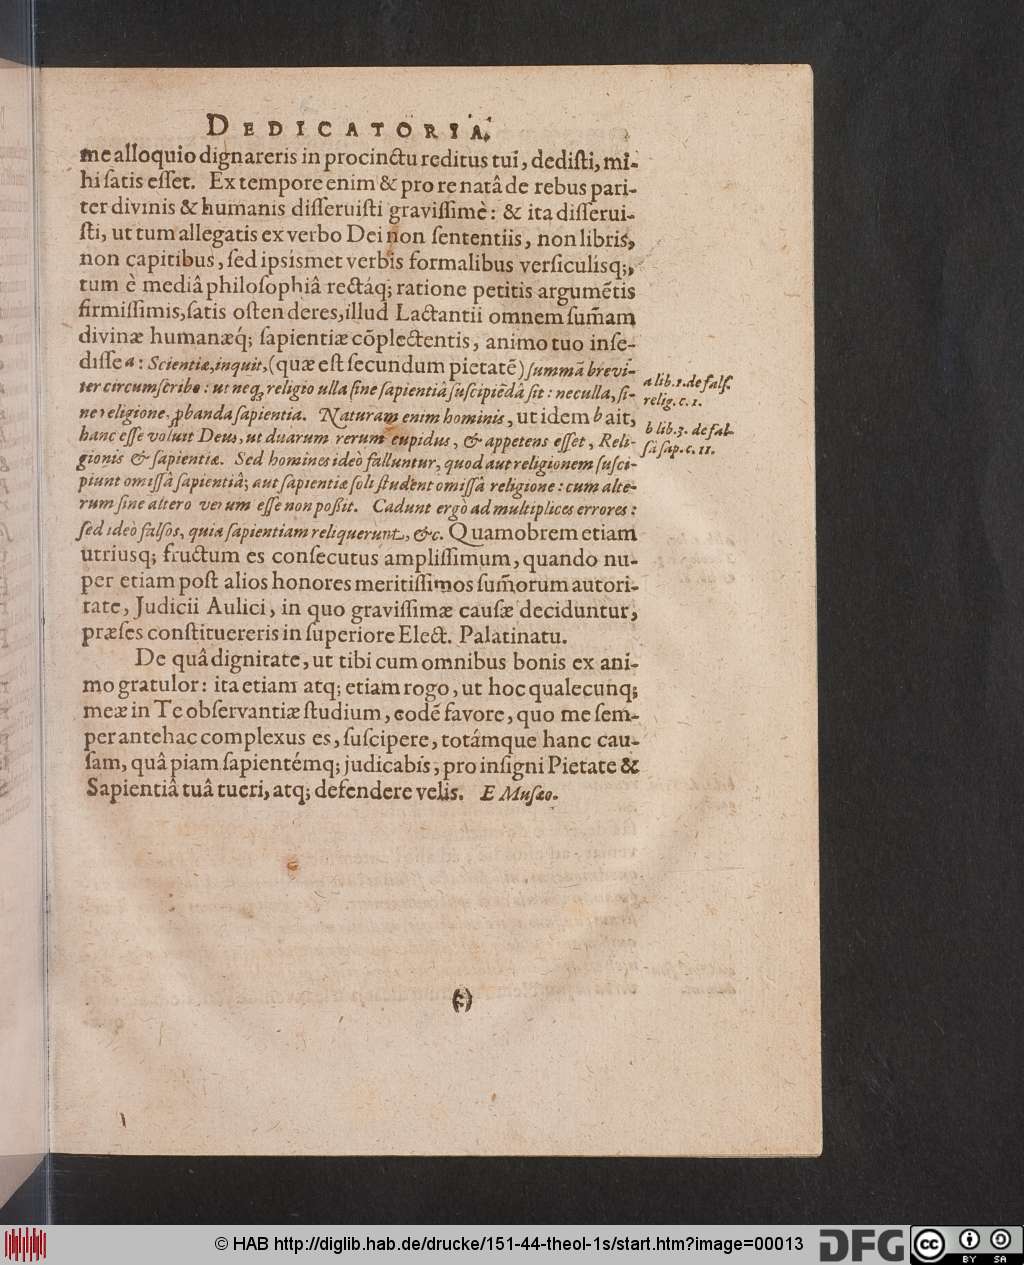 DEDICATORIA.
me alloquio dignareris in procinctu reditus tui, dedisti, mi-
hi satis esset. Ex tempore enim & pro re natâ de rebus pari-
ter divinis & humanis disseruisti gravissimè: & ita disserui-
sti, ut tum allegatis ex verbo Dei non sententiis, non libris,
non capitibus, sed ipsismet verbis formalibus versiculisq;,
tum è mediâ philosophiâ rectáq; ratione petitis argumẽtis
firmissimis, satis ostenderes, illud Lactantii omnem sum̃am
divinæ humanæq́; sapientiæ cõplectentis, animo tuo inse-
disse a: Scientiæ, inquit, (quæ est secundum pietatẽ) summã brevi-
ter circumscribo: ut neq; religio ulla sine sapientiâ suscipiẽdâ sit: nec ulla, si-
ne religione, ꝓbanda sapientia. Naturam enim hominis, ut idem b ait,
hanc esse voluit Deus, ut duarum rerum cupidus, & appetens esset, Reli-
gionis & sapientiæ. Sed homines ideò falluntur, quod aut religionem susci-
piunt omissâ sapientiâ; aut sapientiæ soli student omissâ religione: cum alte-
rum sine altero verum esse non possit. Cadunt ergò ad multiplices errores:
sed ideò falsos, quia sapientiam reliquerunt, &c. Quamobrem etiam
utriusq; fructum es consecutus amplissimum, quando nu-
per etiam post alios honores meritissimos sum̃orum autori-
tate, Judicii Aulici, in quo gravissimæ causæ deciduntur,
præses constituereris in superiore Elect. Palatinatu.
De quâ dignitate, ut tibi cum omnibus bonis ex ani-
mo gratulor: ita etiam atq; etiam rogo, ut hoc qualecunq;
meæ in Te observantiæ studium, eodẽ favore, quo me sem-
per antehac complexus es, suscipere, totámque hanc cau-
sam, quâ piam sapientémq; judicabis, pro insigni Pietate &
Sapientiâ tuâ tueri, atq; defendere velis. E Musæo.
a lib. 1. de fals.
relig. c. 1.
b lib. 3. de fal-
sâ sap. c. 11.
© HAB http://diglib.hab.de/drucke/151-44-theol-1s/start.htm?image=00013
DFG
cc
BY SA